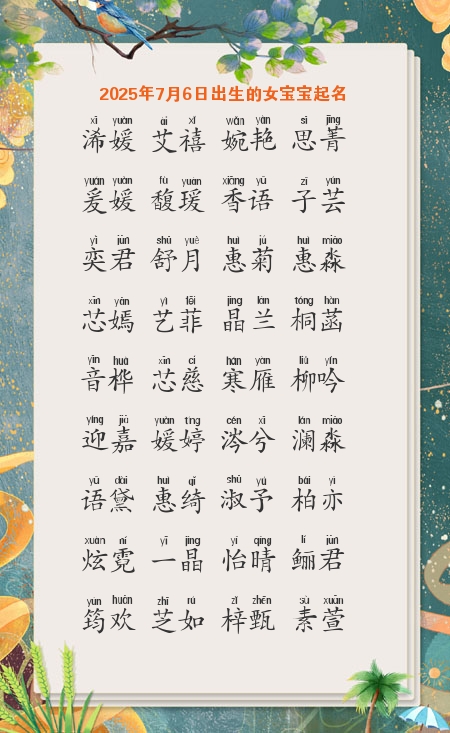 2025年7月6日出生的女宝宝起名
xī yuàn ài xǐ wǎn yàn sī jīng
浠媛 艾禧 婉艳 思菁
yuán yuàn fù yuàn xiāng yǔ zǐ yún
爰媛 馥瑗 香语 子芸
yì jūn shū yuè huì jú huì miǎo
奕君 舒月 惠菊 惠淼
xīn yān yì fēi jīng lán tóng hàn
芯嫣 艺菲 晶兰 桐菡
yīn huà xīn cí hán yàn liǔ yín
音桦 芯慈 寒雁 柳吟
yíng jiā yuàn tíng cén xī lán miǎo
迎嘉 媛婷 涔兮 澜淼
yǔ dài huì qǐ shū yǔ bǎi yì
语黛 惠绮 淑予 柏亦
xuàn ní yī jīng yí qíng lí jūn
炫霓 一晶 怡晴 鲡君
yún huān zhī rú zǐ zhēn sù xuān
筠欢 芝如 梓甄 素萱